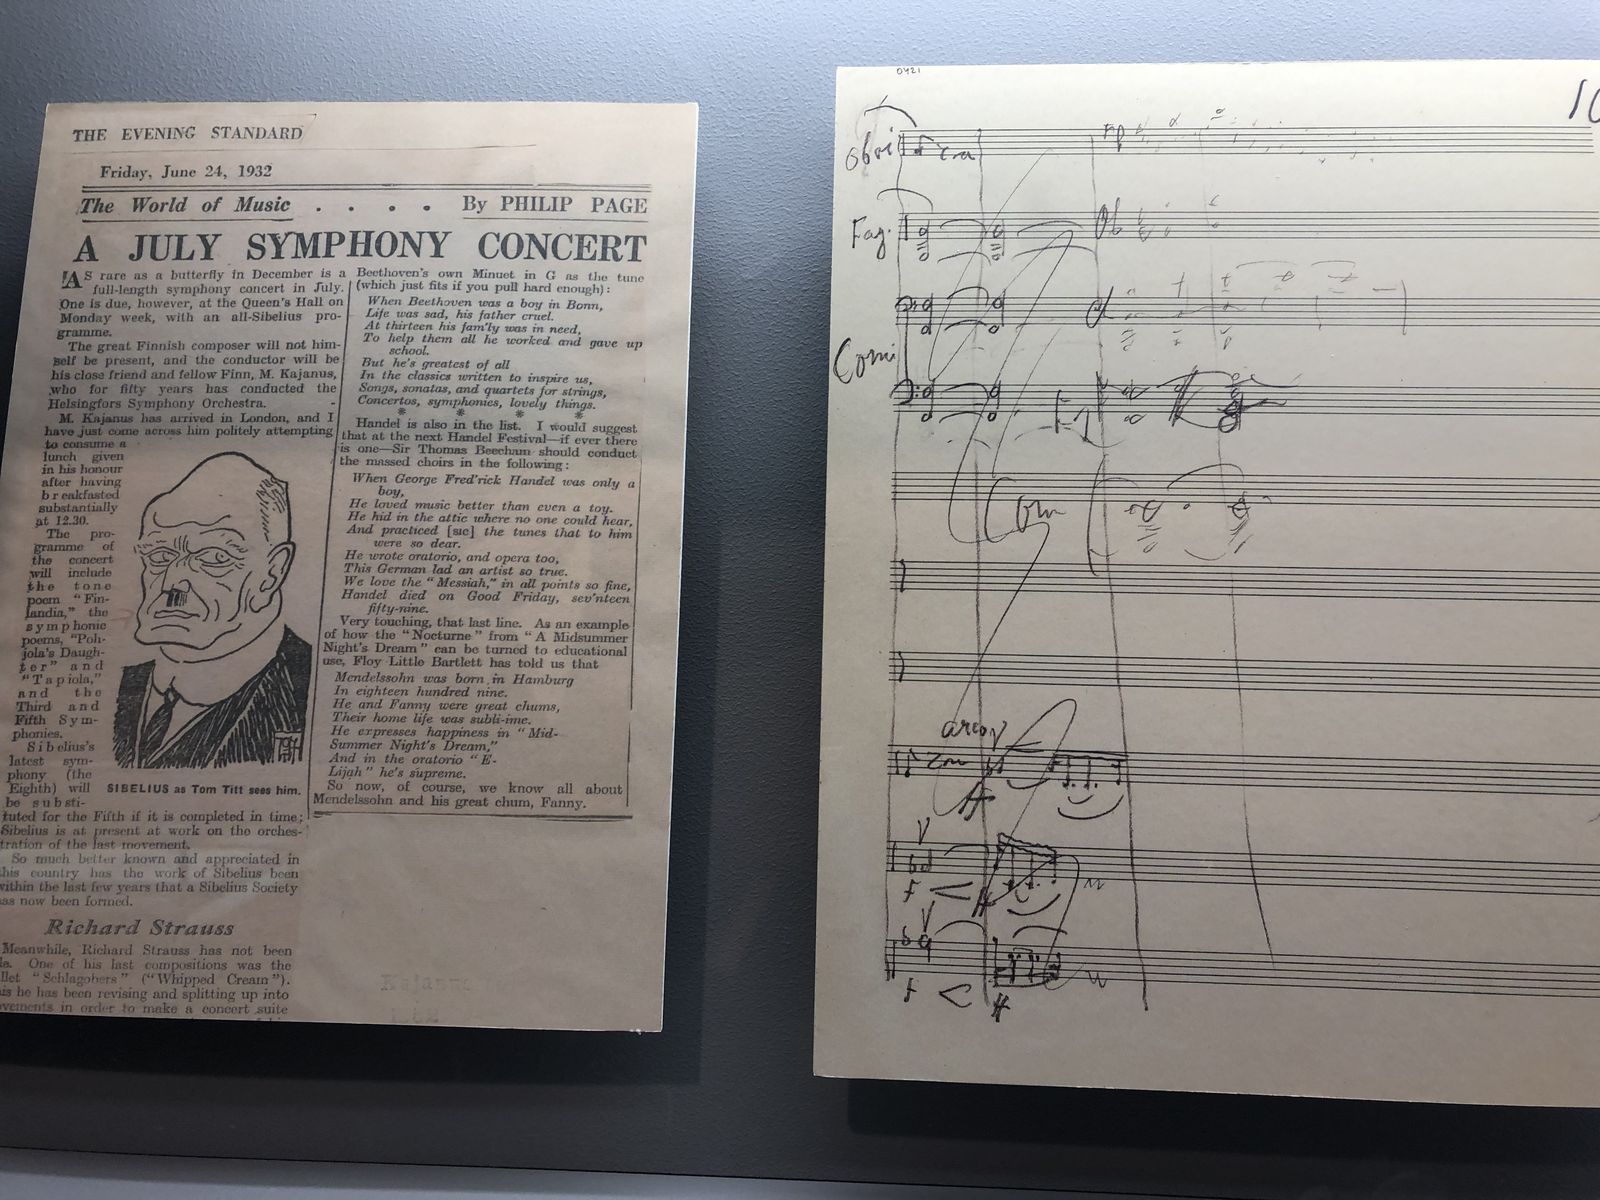 THE EVENING STANDARD
Friday, June 24, 1932
The World of Music . . . . By PHILIP PAGE
A JULY SYMPHONY CONCERT
AS rare as a butterfly in December is a
full-length symphony concert in July.
One is due, however, at the Queen's Hall on
Monday week, with an all-Sibelius pro-
gramme.
The great Finnish composer will not him-
self be present, and the conductor will be
his close friend and fellow Finn, M. Kajanus,
who for fifty years has conducted the
Helsingfors Symphony Orchestra.
M. Kajanus has arrived in London, and I
have just come across him politely attempting
to consume a
lunch given
in his honour
after having
breakfasted
substantially
at 12.30.
The pro-
gramme of
the concert
will include
the tone
poem "Fin-
landia," the
symphonic
poems, "Poh-
jola's Daugh-
ter" and
"Tapiola,"
and the
Third and
Fifth Sym-
phonies.
Sibelius's
latest sym-
phony (the
Eighth) will
be substi-
tuted for the Fifth if it is completed in time;
Sibelius is at present at work on the orches-
tration of the last movement.
So much better known and appreciated in
this country has the work of Sibelius been
within the last few years that a Sibelius Society
has now been formed.
SIBELIUS as Tom Titt sees him.
Richard Strauss
Meanwhile, Richard Strauss has not been
One of his last compositions was the
"Schlagobers" ("Whipped Cream").
he has been revising and splitting up into
movements in order to make a concert suite
Beethoven's own Minuet in G as the tune
(which just fits if you pull hard enough):
When Beethoven was a boy in Bonn,
Life was sad, his father cruel.
At thirteen his fam'ly was in need,
To help them all he worked and gave up
school.
But he's greatest of all
In the classics written to inspire us,
Songs, sonatas, and quartets for strings,
Concertos, symphonies, lovely things.
* * * *
Handel is also in the list. I would suggest
that at the next Handel Festival—if ever there
is one—Sir Thomas Beecham should conduct
the massed choirs in the following:
When George Fred'rick Handel was only a
boy,
He loved music better than even a toy.
He hid in the attic where no one could hear,
And practiced [SIC] the tunes that to him
were so dear.
He wrote oratorio, and opera too,
This German lad an artist so true.
We love the "Messiah," in all points so fine,
Handel died on Good Friday, sev'nteen
fifty-nine.
Very touching, that last line. As an example
of how the "Nocturne" from "A Midsummer
Night's Dream" can be turned to educational
use, Floy Little Bartlett has told us that
Mendelssohn was born in Hamburg
In eighteen hundred nine.
He and Fanny were great chums,
Their home life was subli-ime.
He expresses happiness in "Mid-
Summer Night's Dream,"
And in the oratorio "E-
Lijah" he's supreme.
So now, of course, we know all about
Mendelssohn and his great chum, Fanny.
0421
10
Oboi
Fag.
Ob
Corni
Fg
Cor
arco
ff
f
ff
f
ff